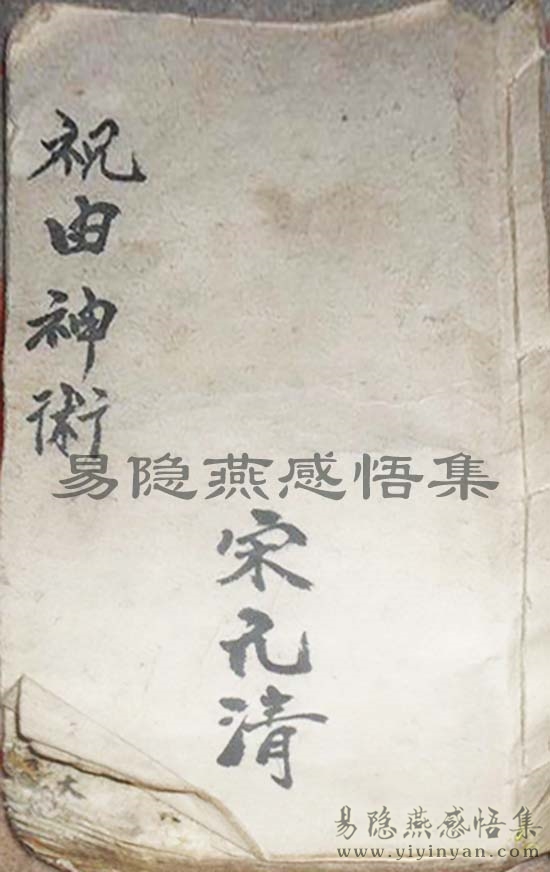 祝由神術
宋元清
易隐燕感悟集
大
易隐燕感悟集
www.yiyinyan.com